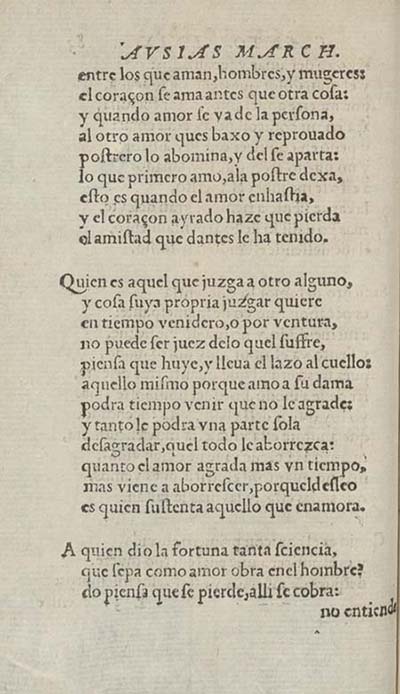 AVSIAS MARCH.
entre los que aman, hombres, y mugeres:
el coraçon se ama antes que otra cosa:
y quando amor se va de la persona,
al otro amor ques baxo y reprouado
postrero lo abomina, y del se aparta:
lo que primero amo, ala postre dexa,
esto es quando el amor enhastia,
y el coraçon ayrado haze que pierda
el amistad que dantes le ha tenido.
Quien es aquel que juzga a otro alguno,
y cosa suya propria juzgar quiere
en tiempo venidero, o por ventura,
no puede ser juez delo quel suffre,
piensa que huye, y lleua el lazo al cuello:
aquello mismo porque amo a su dama
podra tiempo venir que no le agrade:
y tanto le podra vna parte sola
desagradar, quel todo le aborrezca:
quanto el amor agrada mas vn tiempo,
mas viene a aborrescer, porquel desseo
es quien sustenta aquello que enamora.
A quien dio la fortuna tanta sciencia,
que sepa como amor obra enel hombre?
do piensa que se pierde, alli se cobra:
no entiende